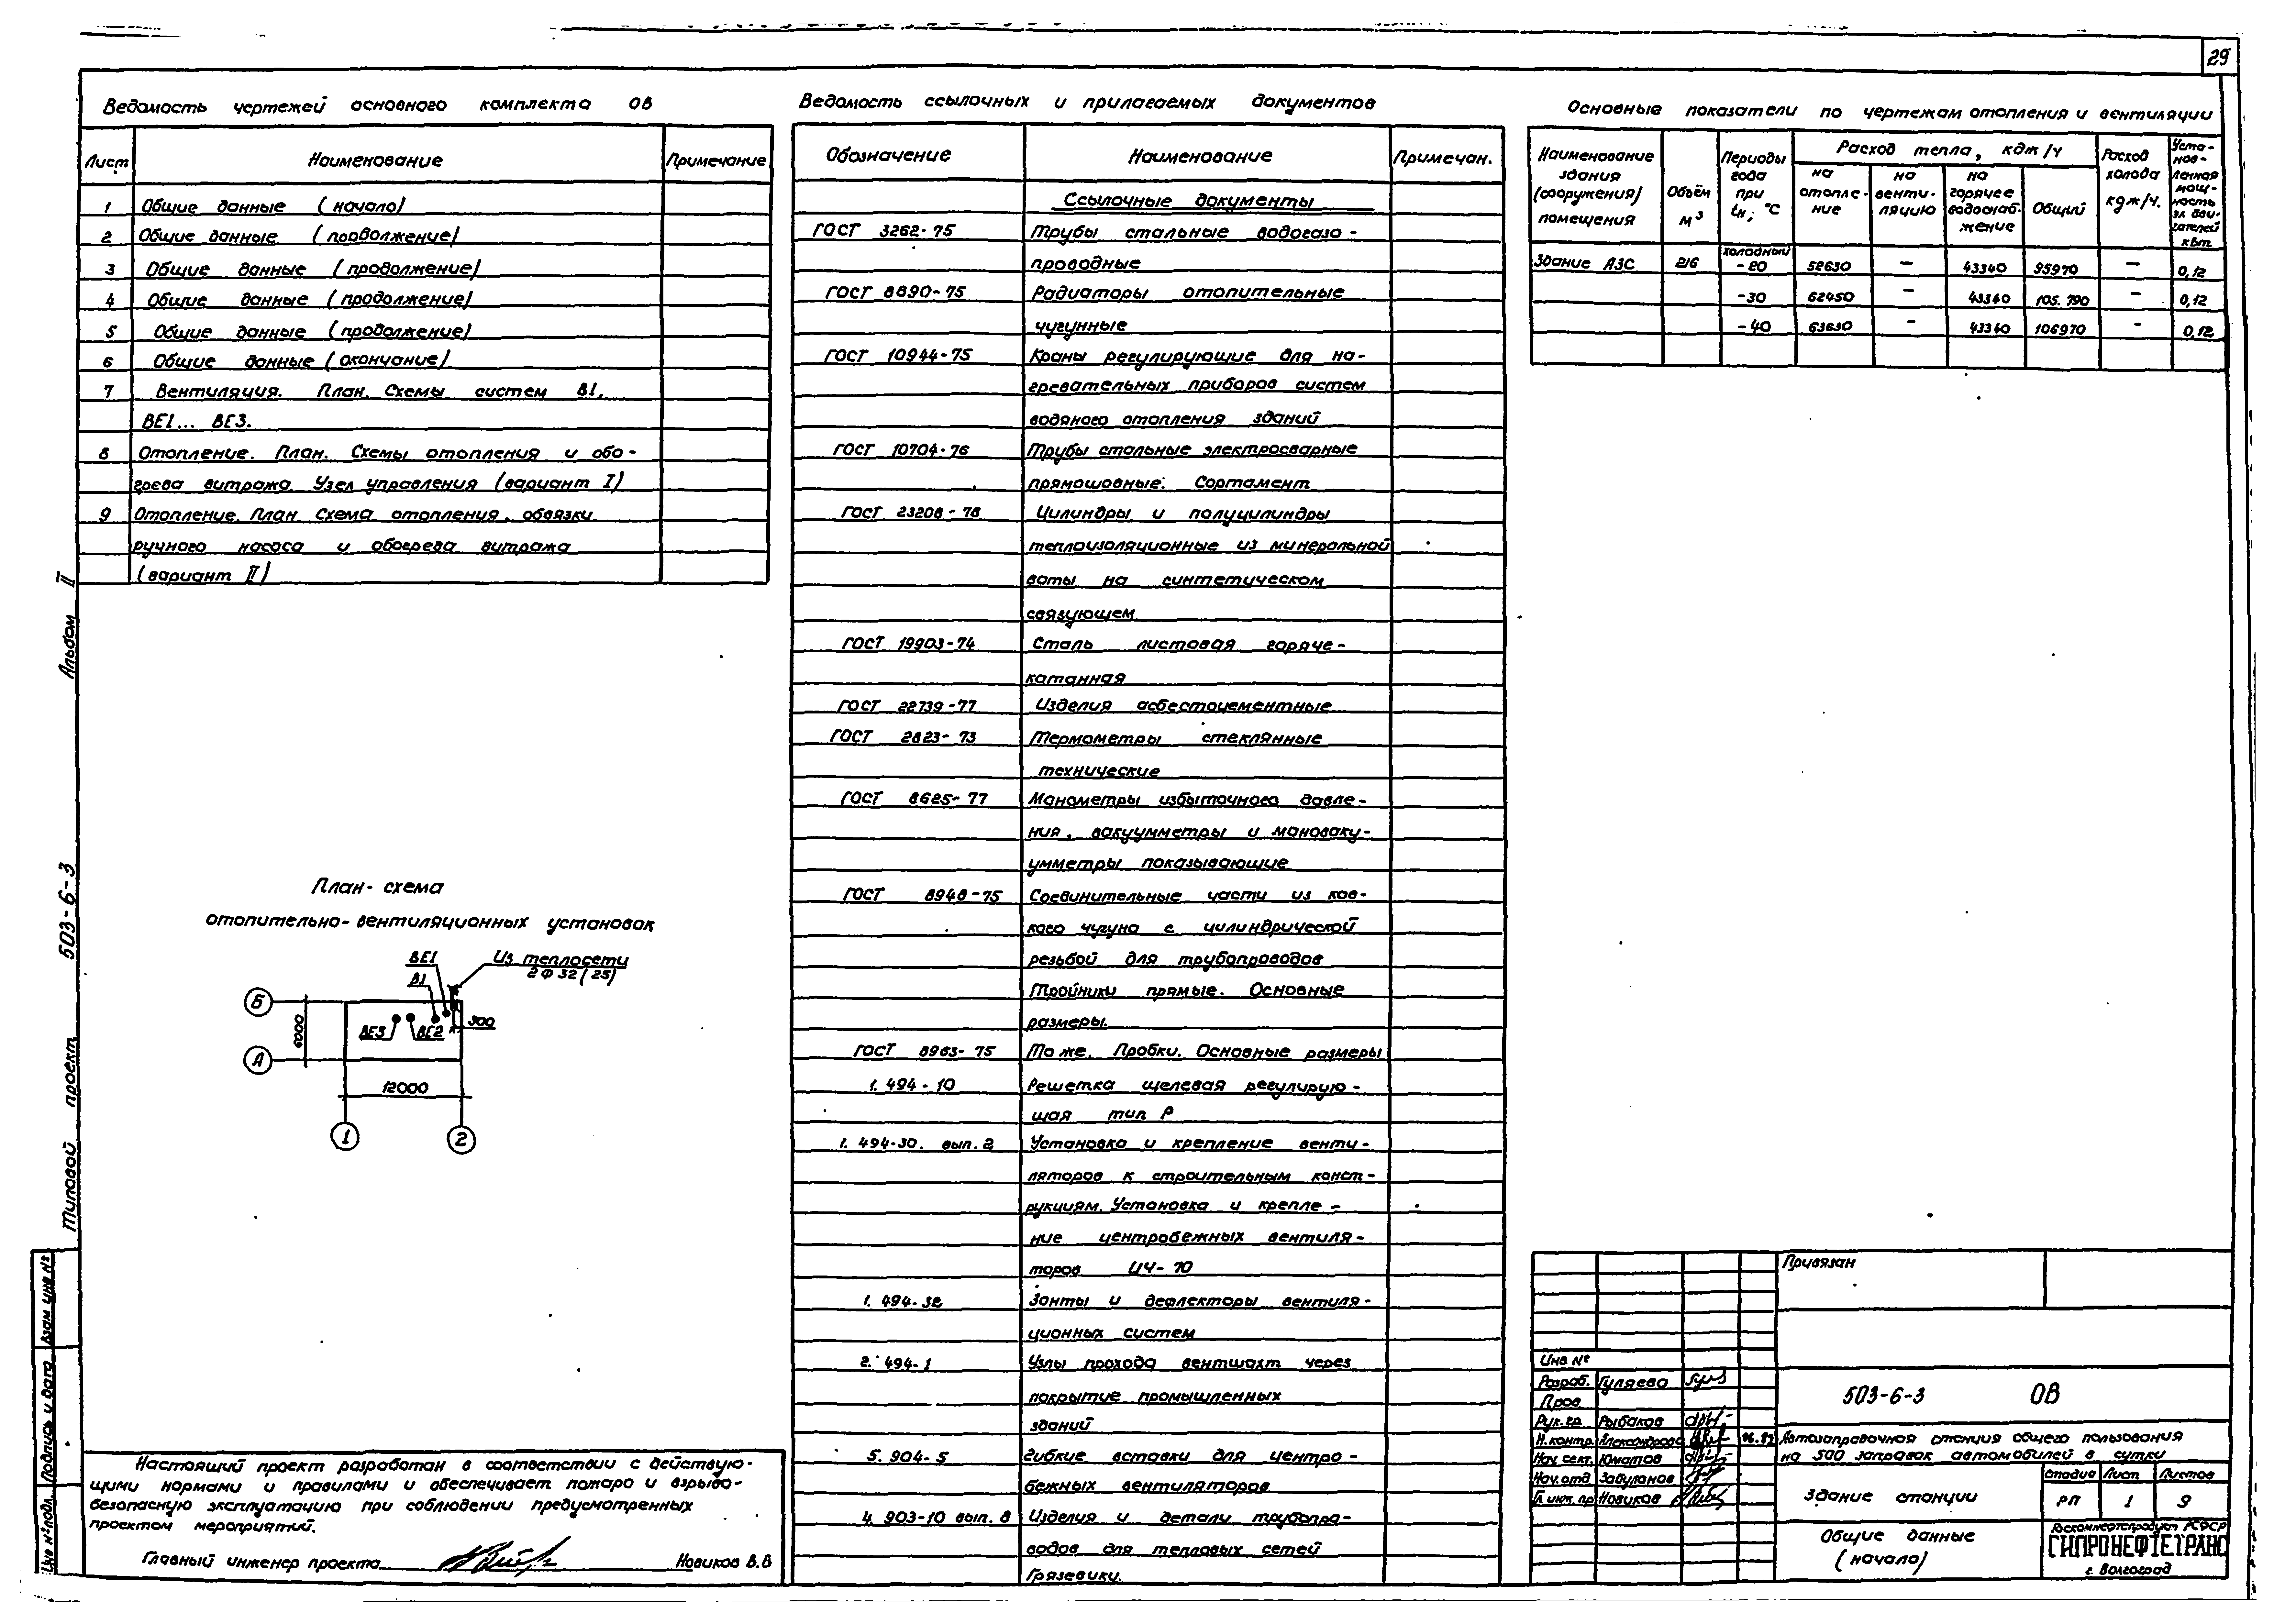 29
Ведомость чертежей основного комплекта ОВ
Лист Наименование Примечание
1 Общие данные (начало)
2 Общие данные (продолжение)
3 Общие данные (продолжение)
4 Общие данные (продолжение)
5 Общие данные (продолжение)
6 Общие данные (окончание)
7 Вентиляция. План. Схемы систем В1,
ВЕ1... ВЕ3.
8 Отопление. План. Схемы отопления и обо-
грева витража. Узел управления (вариант I)
9 Отопление. План. Схема отопления, обвязки
ручного насоса и обогрева витража
(вариант II)
План-схема
отопительно-вентиляционных установок
ВЕ1
Из теплосети
2Ф32(25)
В1
Б
6000
ВЕ3 ВЕ2
300
А
12000
1 2
Настоящий проект разработан в соответствии с действую-
щими нормами и правилами и обеспечивает пожаро и взрыво-
безопасную эксплуатацию при соблюдении предусмотренных
проектом мероприятий.
Главный инженер проекта Новиков В.В
Ведомость ссылочных и прилагаемых документов
Обозначение Наименование Примечан.
Ссылочные документы
ГОСТ 3262-75 Трубы стальные водогазо-
проводные
ГОСТ 8690-75 Радиаторы отопительные
чугунные
ГОСТ 10944-75 Краны регулирующие для на-
гревательных приборов систем
водяного отопления зданий
ГОСТ 10704-76 Трубы стальные электросварные
прямошовные. Сортамент
ГОСТ 23208-78 Цилиндры и полуцилиндры
теплоизоляционные из минеральной
ваты на синтетическом
связующем
ГОСТ 19903-74 Сталь листовая горяче-
катанная
ГОСТ 22739-77 Изделия асбестоцементные
ГОСТ 2823-73 Термометры стеклянные
технические
ГОСТ 8625-77 Манометры избыточного давле-
ния, вакуумметры и мановаку-
умметры показывающие
ГОСТ 8948-75 Соединительные части из ков-
кого чугуна с цилиндрической
резьбой для трубопроводов
Тройники прямые. Основные
размеры.
ГОСТ 8963-75 То же. Пробки. Основные размеры
1.494-10 Решетка щелевая регулирую-
щая тип Р
1.494-30. вып.2 Установка и крепление венти-
ляторов к строительным конст-
рукциям. Установка и крепле-
ние центробежных вентиля-
торов Ц4-70
1.494-32 Зонты и дефлекторы вентиля-
ционных систем
2.494-1 Узлы прохода вентшахт через
покрытие промышленных
зданий
5.904-5 Гибкие вставки для центро-
бежных вентиляторов
4 903-10 вып. 8 Изделия и детали трубопро-
водов для тепловых сетей
Грязевики.
Основные показатели по чертежам отопления и вентиляции
Наименование здания (сооружения) помещения
Объём м³
Периоды года при tн, °С
Расход тепла, кдж/ч
на отопле-ние
на венти-ляцию
на горячее водоснаб-жение
Общий
Расход холода кдж/ч.
Уста-нов-ленная мощ-ность эл дви-гателей квт
Здание АЗС 216 холодный -20 52630 — 43340 95970 — 0,12
-30 62450 — 43340 105.790 — 0,12
-40 63630 — 43340 106970 — 0,12
Привязан
Инв №
Разраб. Гуляева
Пров
Рук.гр Рыбаков
Н.контр. Александрова
Нач. сект. Юматов
Нач.отд Забуланов
Гл инж. пр Новиков
503-6-3 ОВ
Автозаправочная станция общего пользования
на 500 заправок автомобилей в сутки
Здание станции
Стадия Лист Листов
РП 1 9
Общие данные
(начало)
Госкомнефтепродукт РСФСР
ГИПРОНЕФТЕТРАНС
г. Волгоград
Типовой проект 503-6-3 Альбом II
Инв № подл. Подпись и дата Взам инв №